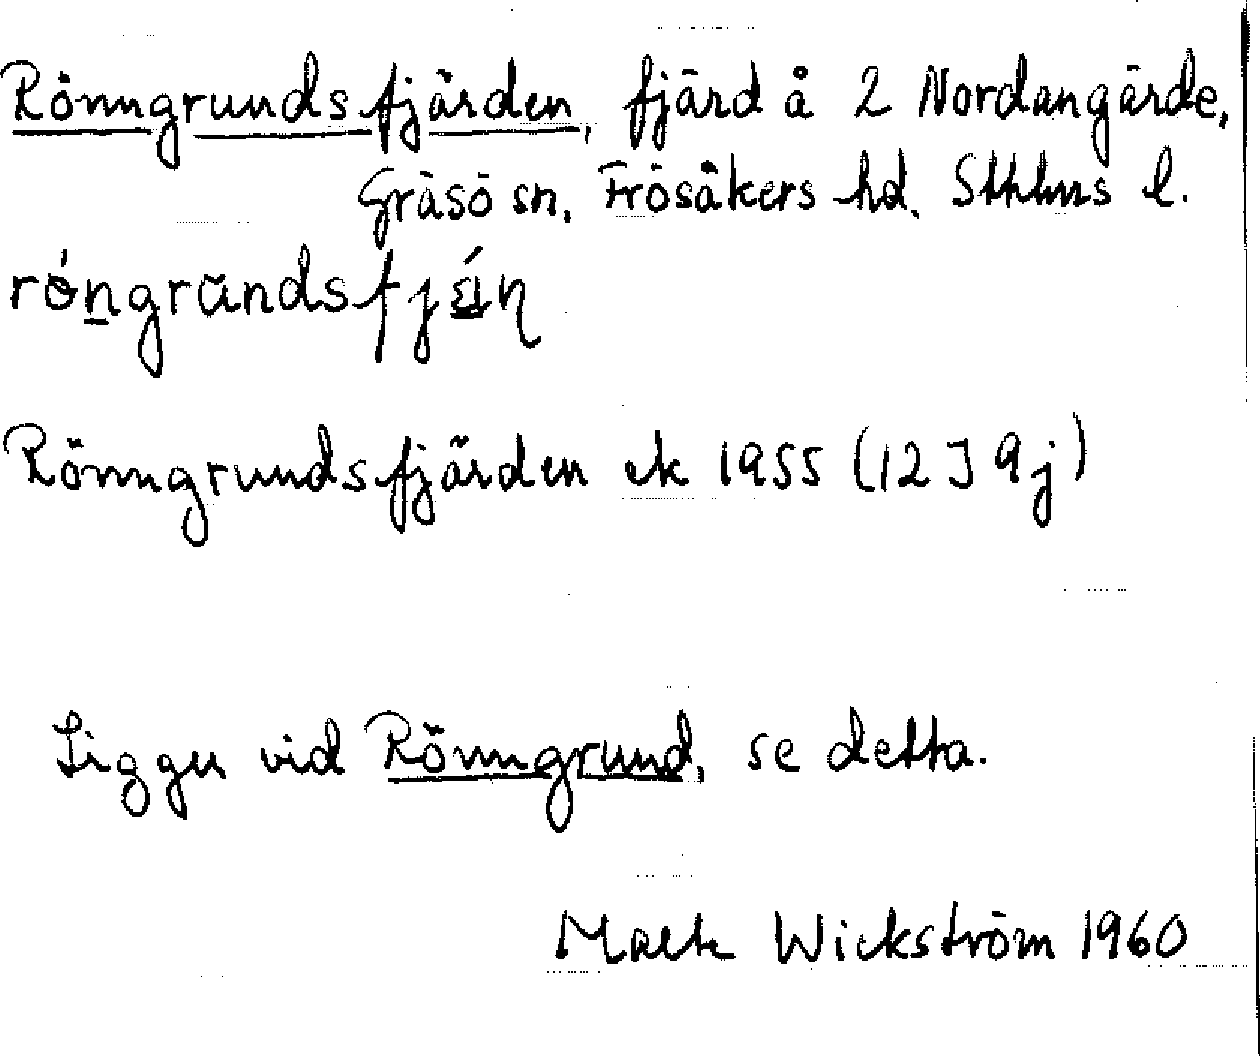 Rönngrundsfjärden, fjärd å 2 Nordangärde,
Gräsö sn, Frösåkers hd, Sthlms l.
Rönngrundsfjärden ek 1955 (12 J 9 j)
Ligger vid Rönngrund, se detta.
Wickström 1960